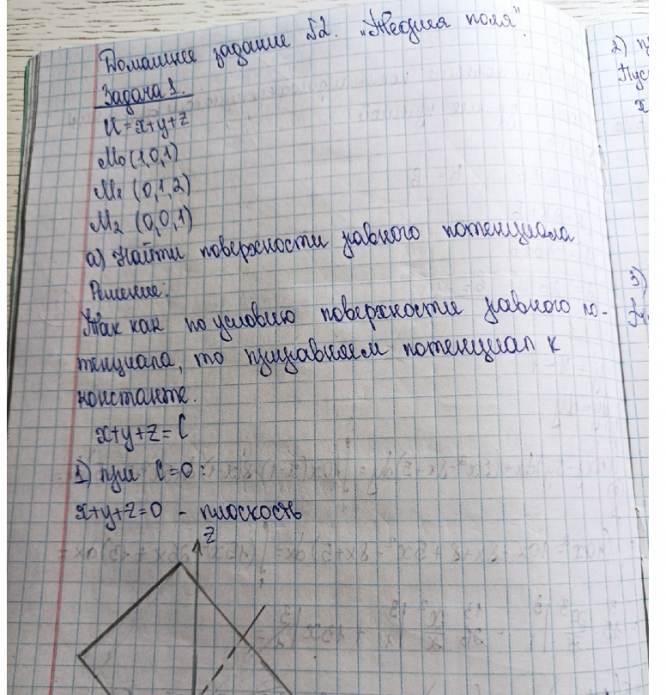 Домашнее задание №2. „Теория поля".
Задача 1.
U=x+y+z
M₀(1,0,1)
M₁ (0,1,2)
M₂ (0,0,1)
а) Найти поверхности равного потенциала
Решение:
Так как по условию поверхности равного по-
тенциала, то приравняем потенциал к
константе.
x+y+z=C
1) при C=0:
x+y+z=0 - плоскость
z
2)
Пус
x
3)